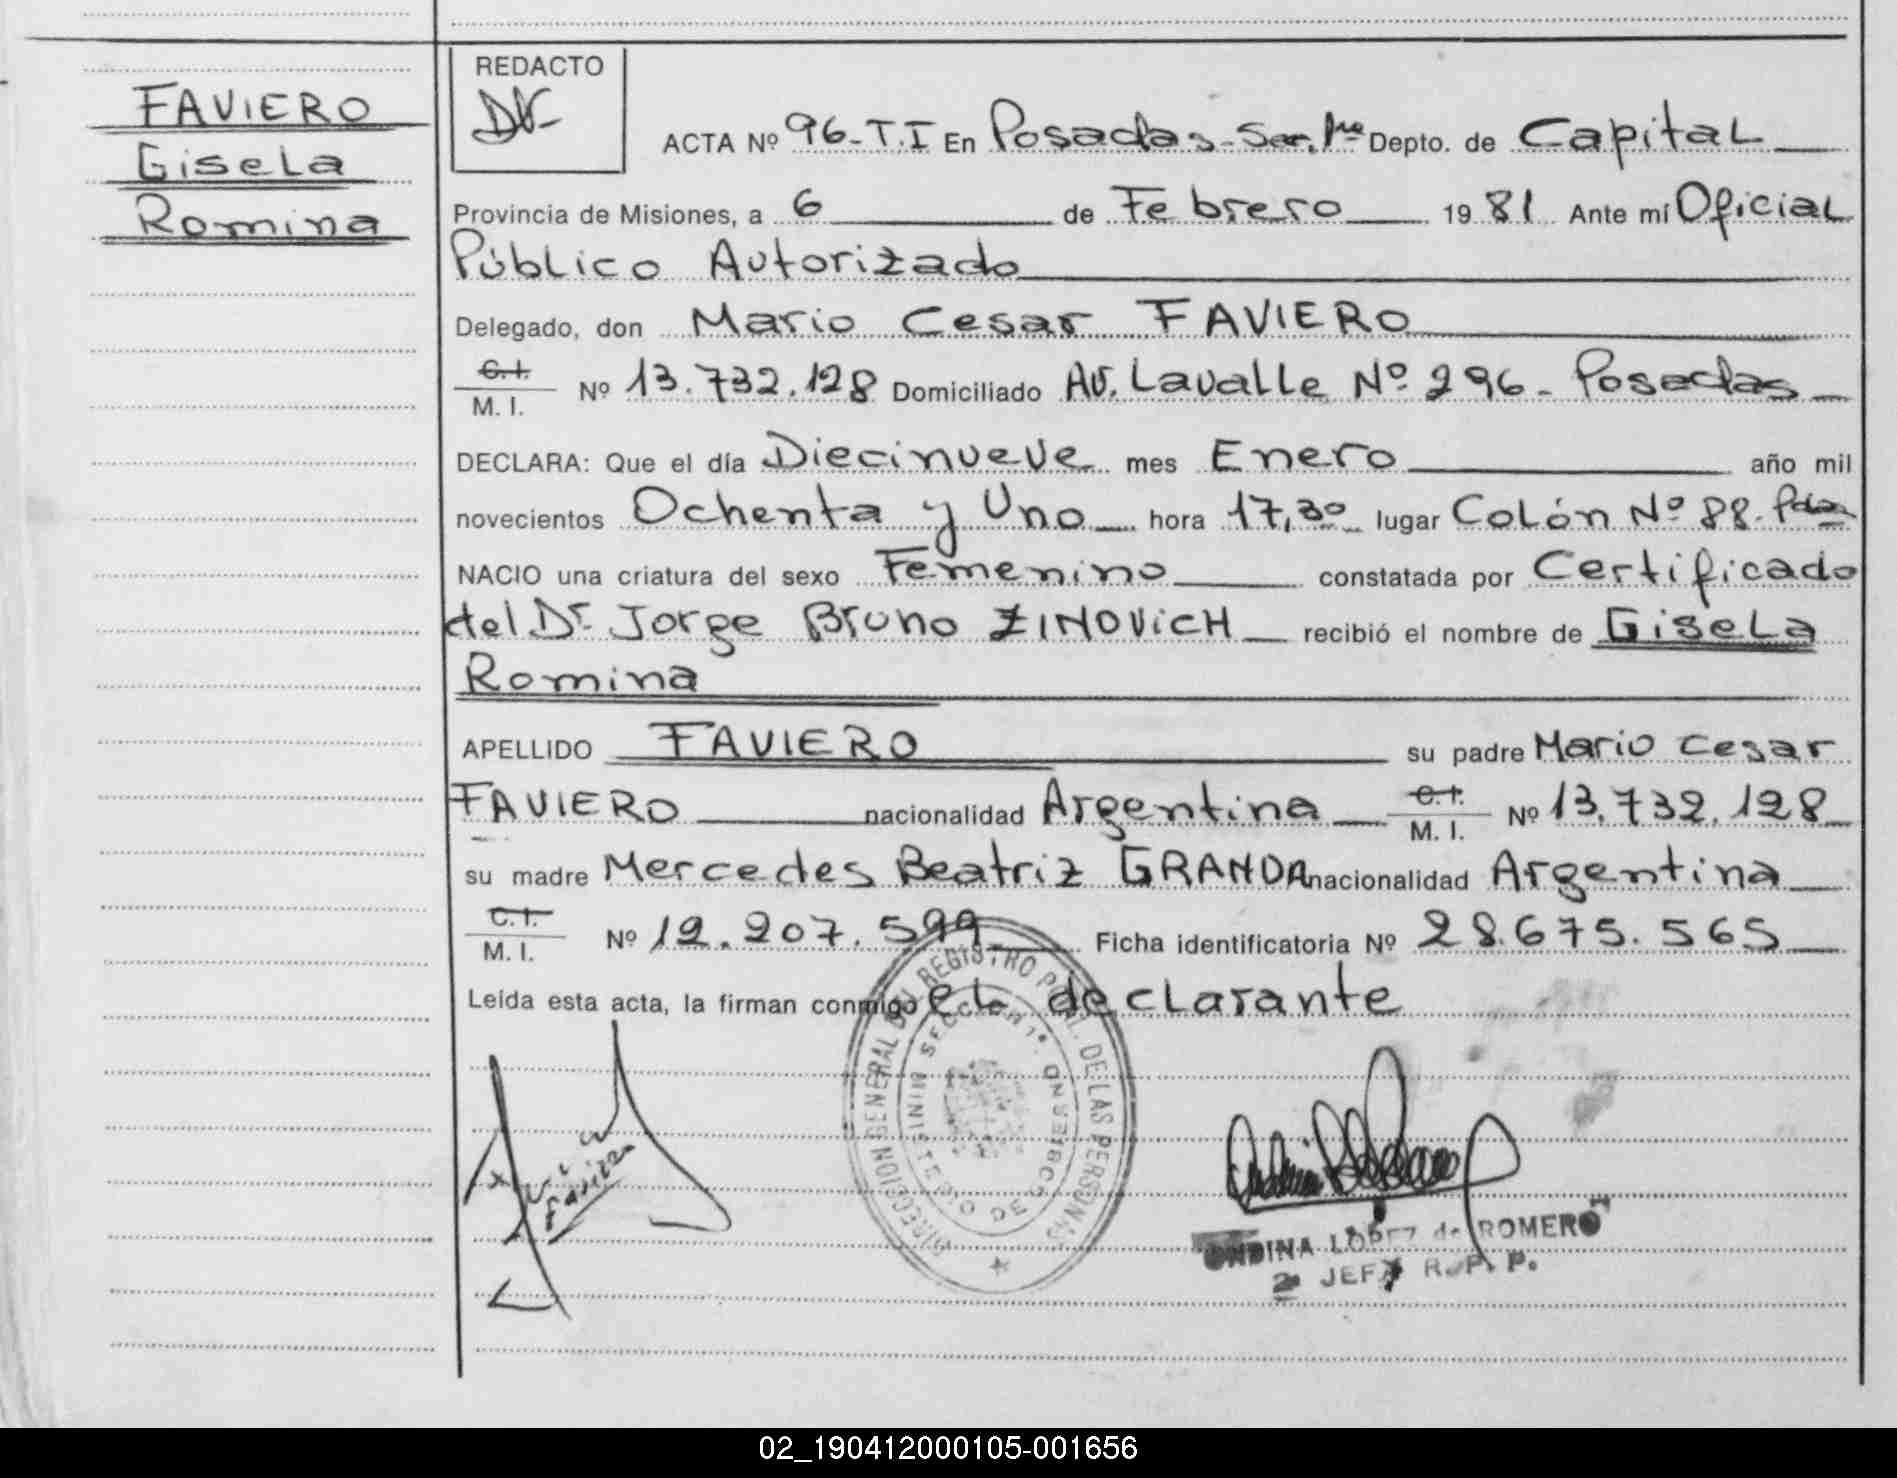 FAVIERO
Gisela
Romina
REDACTO
ACTA Nº 96-T.I En Posadas-Sec. 1ra Depto. de Capital
Provincia de Misiones, a 6 de Febrero 1981 Ante mí Oficial
Público Autorizado
Delegado, don Mario Cesar FAVIERO
C.I.
M. I. Nº 13.732.128 Domiciliado Av. Lavalle Nº 296- Posadas
DECLARA: Que el día Diecinueve mes Enero año mil
novecientos Ochenta y Uno hora 17,30 lugar Colón Nº 88. Pdas
NACIO una criatura del sexo Femenino constatada por Certificado
del Dr. Jorge Bruno ZINOVICH recibió el nombre de Gisela
Romina
APELLIDO FAVIERO su padre Mario Cesar
FAVIERO nacionalidad Argentina C.I. M. I. Nº 13.732.128
su madre Mercedes Beatriz GRANDA nacionalidad Argentina
C.I.
M. I. Nº 12.207.599 Ficha identificatoria Nº 28.675.565
Leída esta acta, la firman conmigo el declarante
DIRECCION GENERAL DEL REGISTRO PCIAL. DE LAS PERSONAS
MINISTERIO DE GOBIERNO SECCION 1ª.
ONDINA LOPEZ de ROMERO
2ª JEFA R. P. P.
02_190412000105-001656